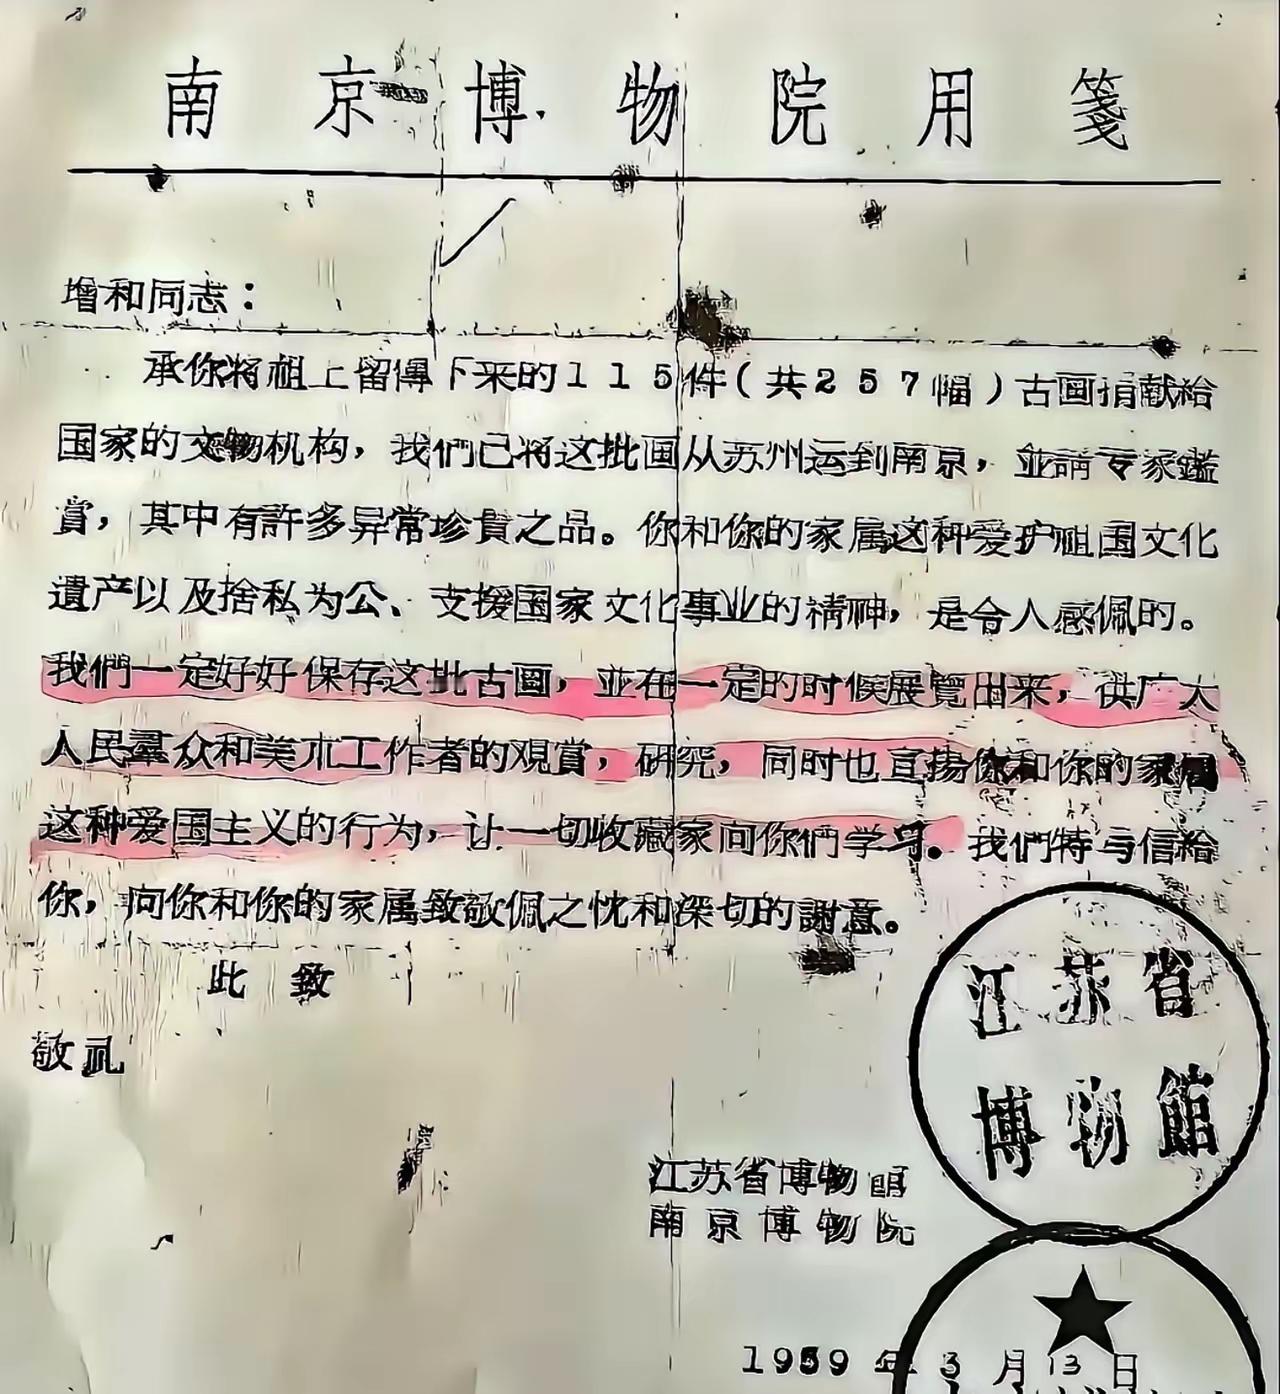 南京博物院用箋
增和同志：
承你将祖上留傳下来的115件（共257幅）古画捐献给
国家的文物机构，我們已将这批画从苏州运到南京，並請专家鑑
賞，其中有許多异常珍貴之品。你和你的家属这种爱护祖国文化
遺产以及捨私为公、支援国家文化事业的精神，是令人感佩的。
我們一定好好保存这批古画，並在一定的时候展覽出来，供广大
人民羣众和美朮工作者的观賞，研究，同时也宣扬你和你的家属
这种爱国主义的行为，让一切收藏家向你們学习。我們特与信给
你，向你和你的家属致敬佩之忱和深切的謝意。
此致
敬礼
江苏省
博物館
江苏省博物館
南京博物院
1959年3月13日